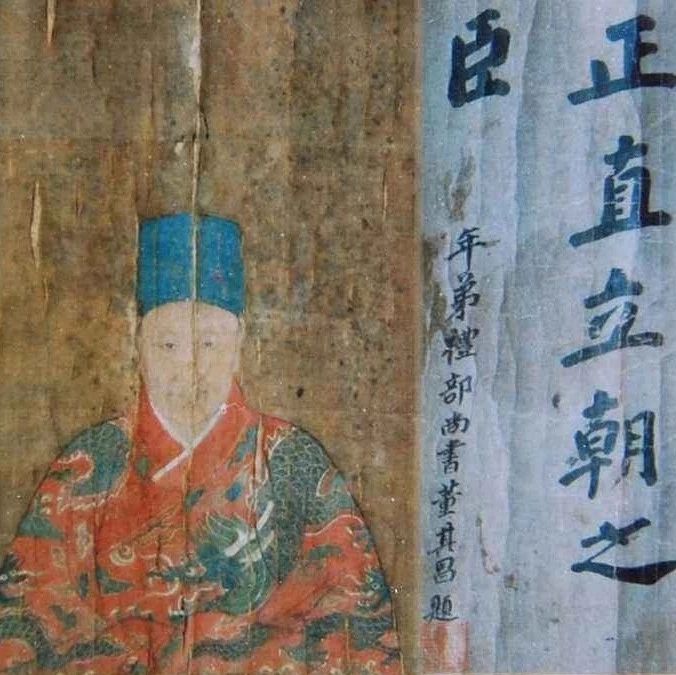 正直立朝之
臣
年弟禮部尚書董其昌題